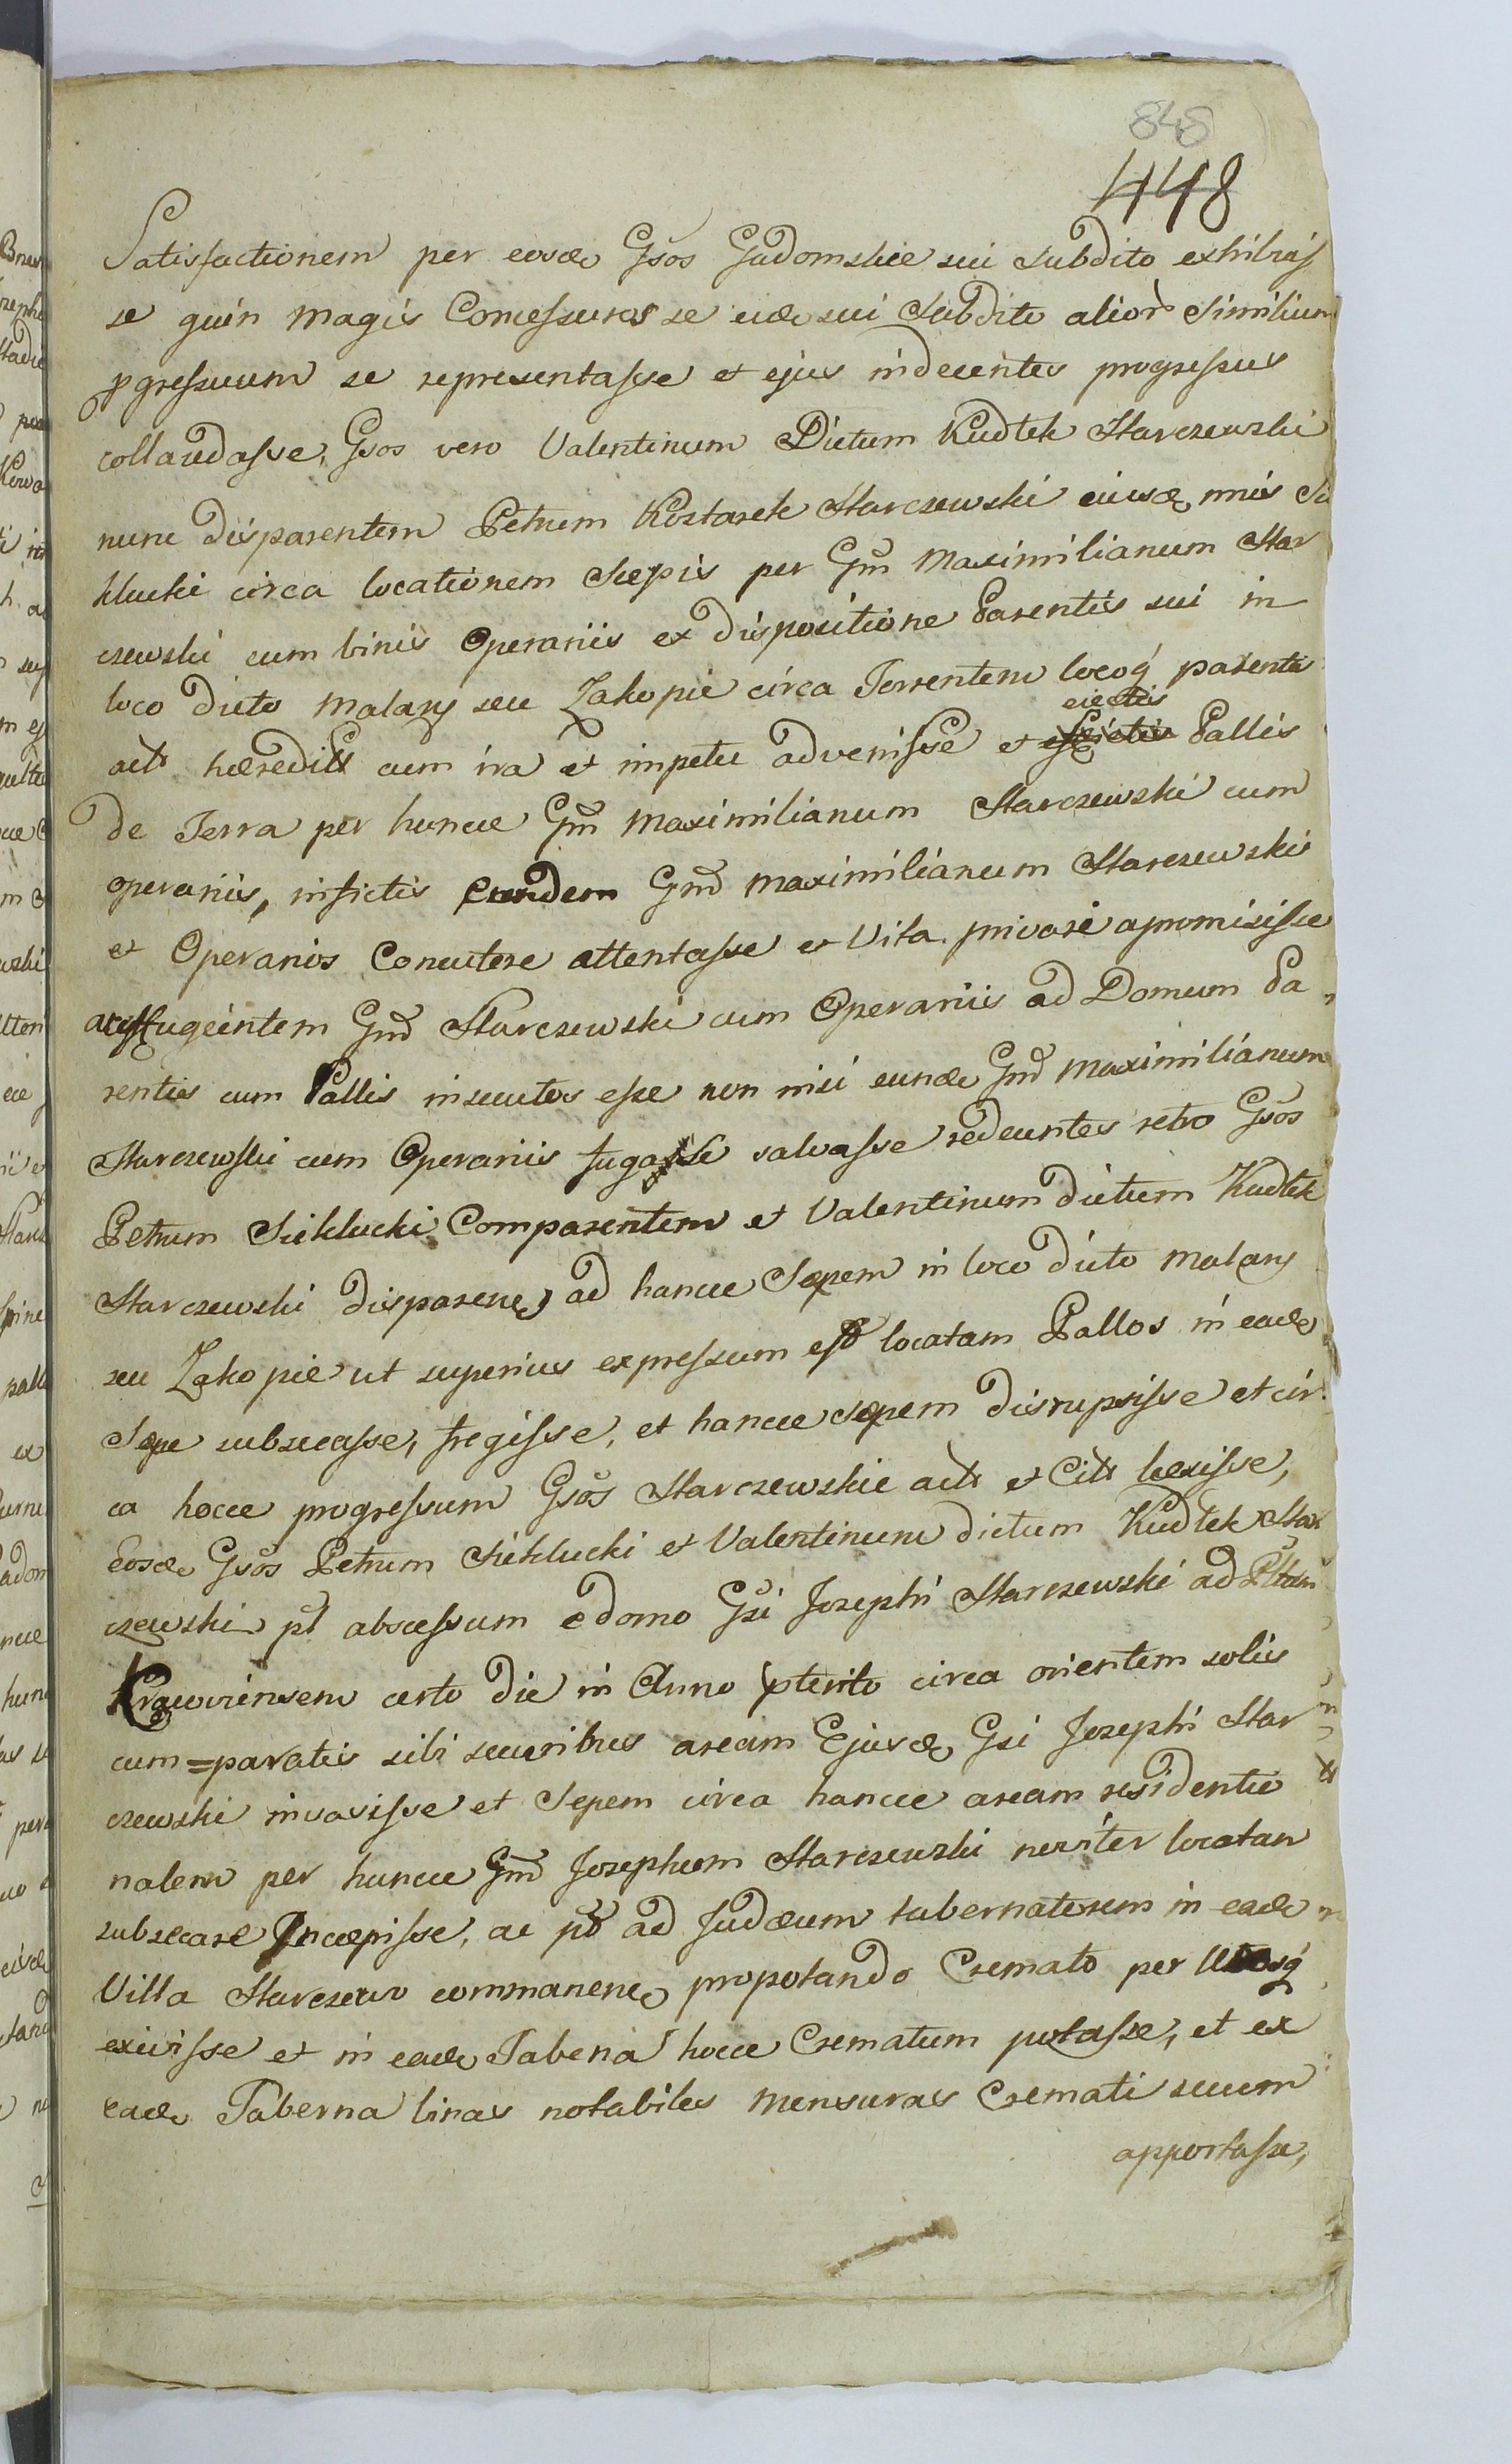 848
448
Satisfactionem per eosde Gsos Gadomskie sui subdito exhibitas
se quin magis Concessuros se eide sui Subdito alior Similium
pgressuum se representasse et ejus indecentes progressus
collaudasse, Gsos vero Valentinum Dictum Kudlek Starczewski
nunc disparentem Petrum Kostarek Starczewski eiusde nnis Si
klucki circa locationem Sepis per Gm Maximilianum Star
czewski cum binis Operariis ex dispositione Parentis sui in
loco dicto Malary seu Zakopie circa Torrentem locoq parente
eiectis
actt hæreditt cum ira et impetu advenisse et Pallis
de Terra per huncce Gm Maximilianum Starczewski cum
operariis, infictis eundem Gnd Maximilianum Starczewski
et Operarios Concutere attentasse et Vita privare apromisisse
ac effugeintem Gnd Starczewski cum Operariis ad Domum Pa
rentis cum Pallis insecutos esse non nisi eunde Gnd Maximilianum
Starczewski cum Operariis fuga se salvasse redeuntes retro Gsos
Petrum Siklucki Comparentem et Valentinum dictum Kudlek
Starczewski disparene ad hancce Sepem in loco dicto Malary
seu Zakopie ut superius expressum est locatam Pallos in eade
Sepe subsecasse, fregisse, et hancce sepem disrupsisse et cir
ca hocce progressum Gsos Starczewskie actt et Citt læsisse,
Eosde Gsos Petrum Siklucki et Valentinum dictum Kudlek Star
czewski pt abscessum e domo Gsi Josephi Starczewski ad
Cracoviensem certo die in Anno pterito circa orientem solis
cum=paratis sibi securibus aream Ejusde Gsi Josephi Star
czewski invasisse et Sepem circa hancce aream residentio
nalem per huncce Gnd Josephum Starczewski noviter locatam
subsecare Incæpisse, ac pt ad Judæum tabernatorem in eade
Villa Starczew commanene propotando Cremato per Utosq
exivisse et in eade Taberna hocce Crematum potasse, et ex
eade Taberna binas notabiles mensuras Cremati secum
apportasse,